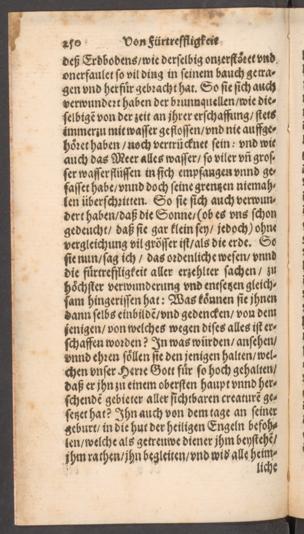 250 Von Fürtreffligkeit
deß Erdbodens/ wie derselbig onzerstöret vnd
onerfaulet so vil ding in seinem bauch getra-
gen vnd herfür gebracht hat. So sie sich auch
verwundert haben der brunnquellen/ wie die-
selbigē von der zeit an jhrer erschaffung/ stets
immerzu mit wasser geflossen/ vnd nie auffge-
höret haben/ noch vertrücknet sein: vnd wie
auch das Meer alles wasser/ so viler vn̄ gros-
ser wasserflüssen in sich empfangen vnnd ge-
fasset habe/ vnnd doch seine grentzen niemah-
len überschritten. So sie sich auch verwun-
dert haben/ daß die Sonne/ (ob es vns schon
gedeucht/ daß sie gar klein sey/ jedoch) ohne
vergleichung vil grösser ist/ als die erde. So
sie nun/ sag ich/ das ordenliche wesen/ vnnd
die fürtreffligkeit aller erzehlter sachen/ zu
höchster verwunderung vnd ensetzen gleich-
sam hingerissen hat: Was können sie jhnen
dann selbs einbildē/ vnd gedencken/ von dem
jenigen/ von welches wegen dises alles ist er-
schaffen worden? In was würden/ ansehen/
vnnd ehren söllen sie den jenigen halten/ wel-
chen vnser Herre Gott für so hoch gehalten/
daß er jhn zu einem obersten haupt vnnd her-
schendē gebieter aller sichtbaren creaturē ge-
setzet hat? Ihn auch von dem tage an seiner
geburt/ in die hut der heiligen Engeln befoh-
len/ welche als getreuwe diener jhm beystehē/
jhm rathen/ jhn begleiten/ vnd wid alle heim-
liche